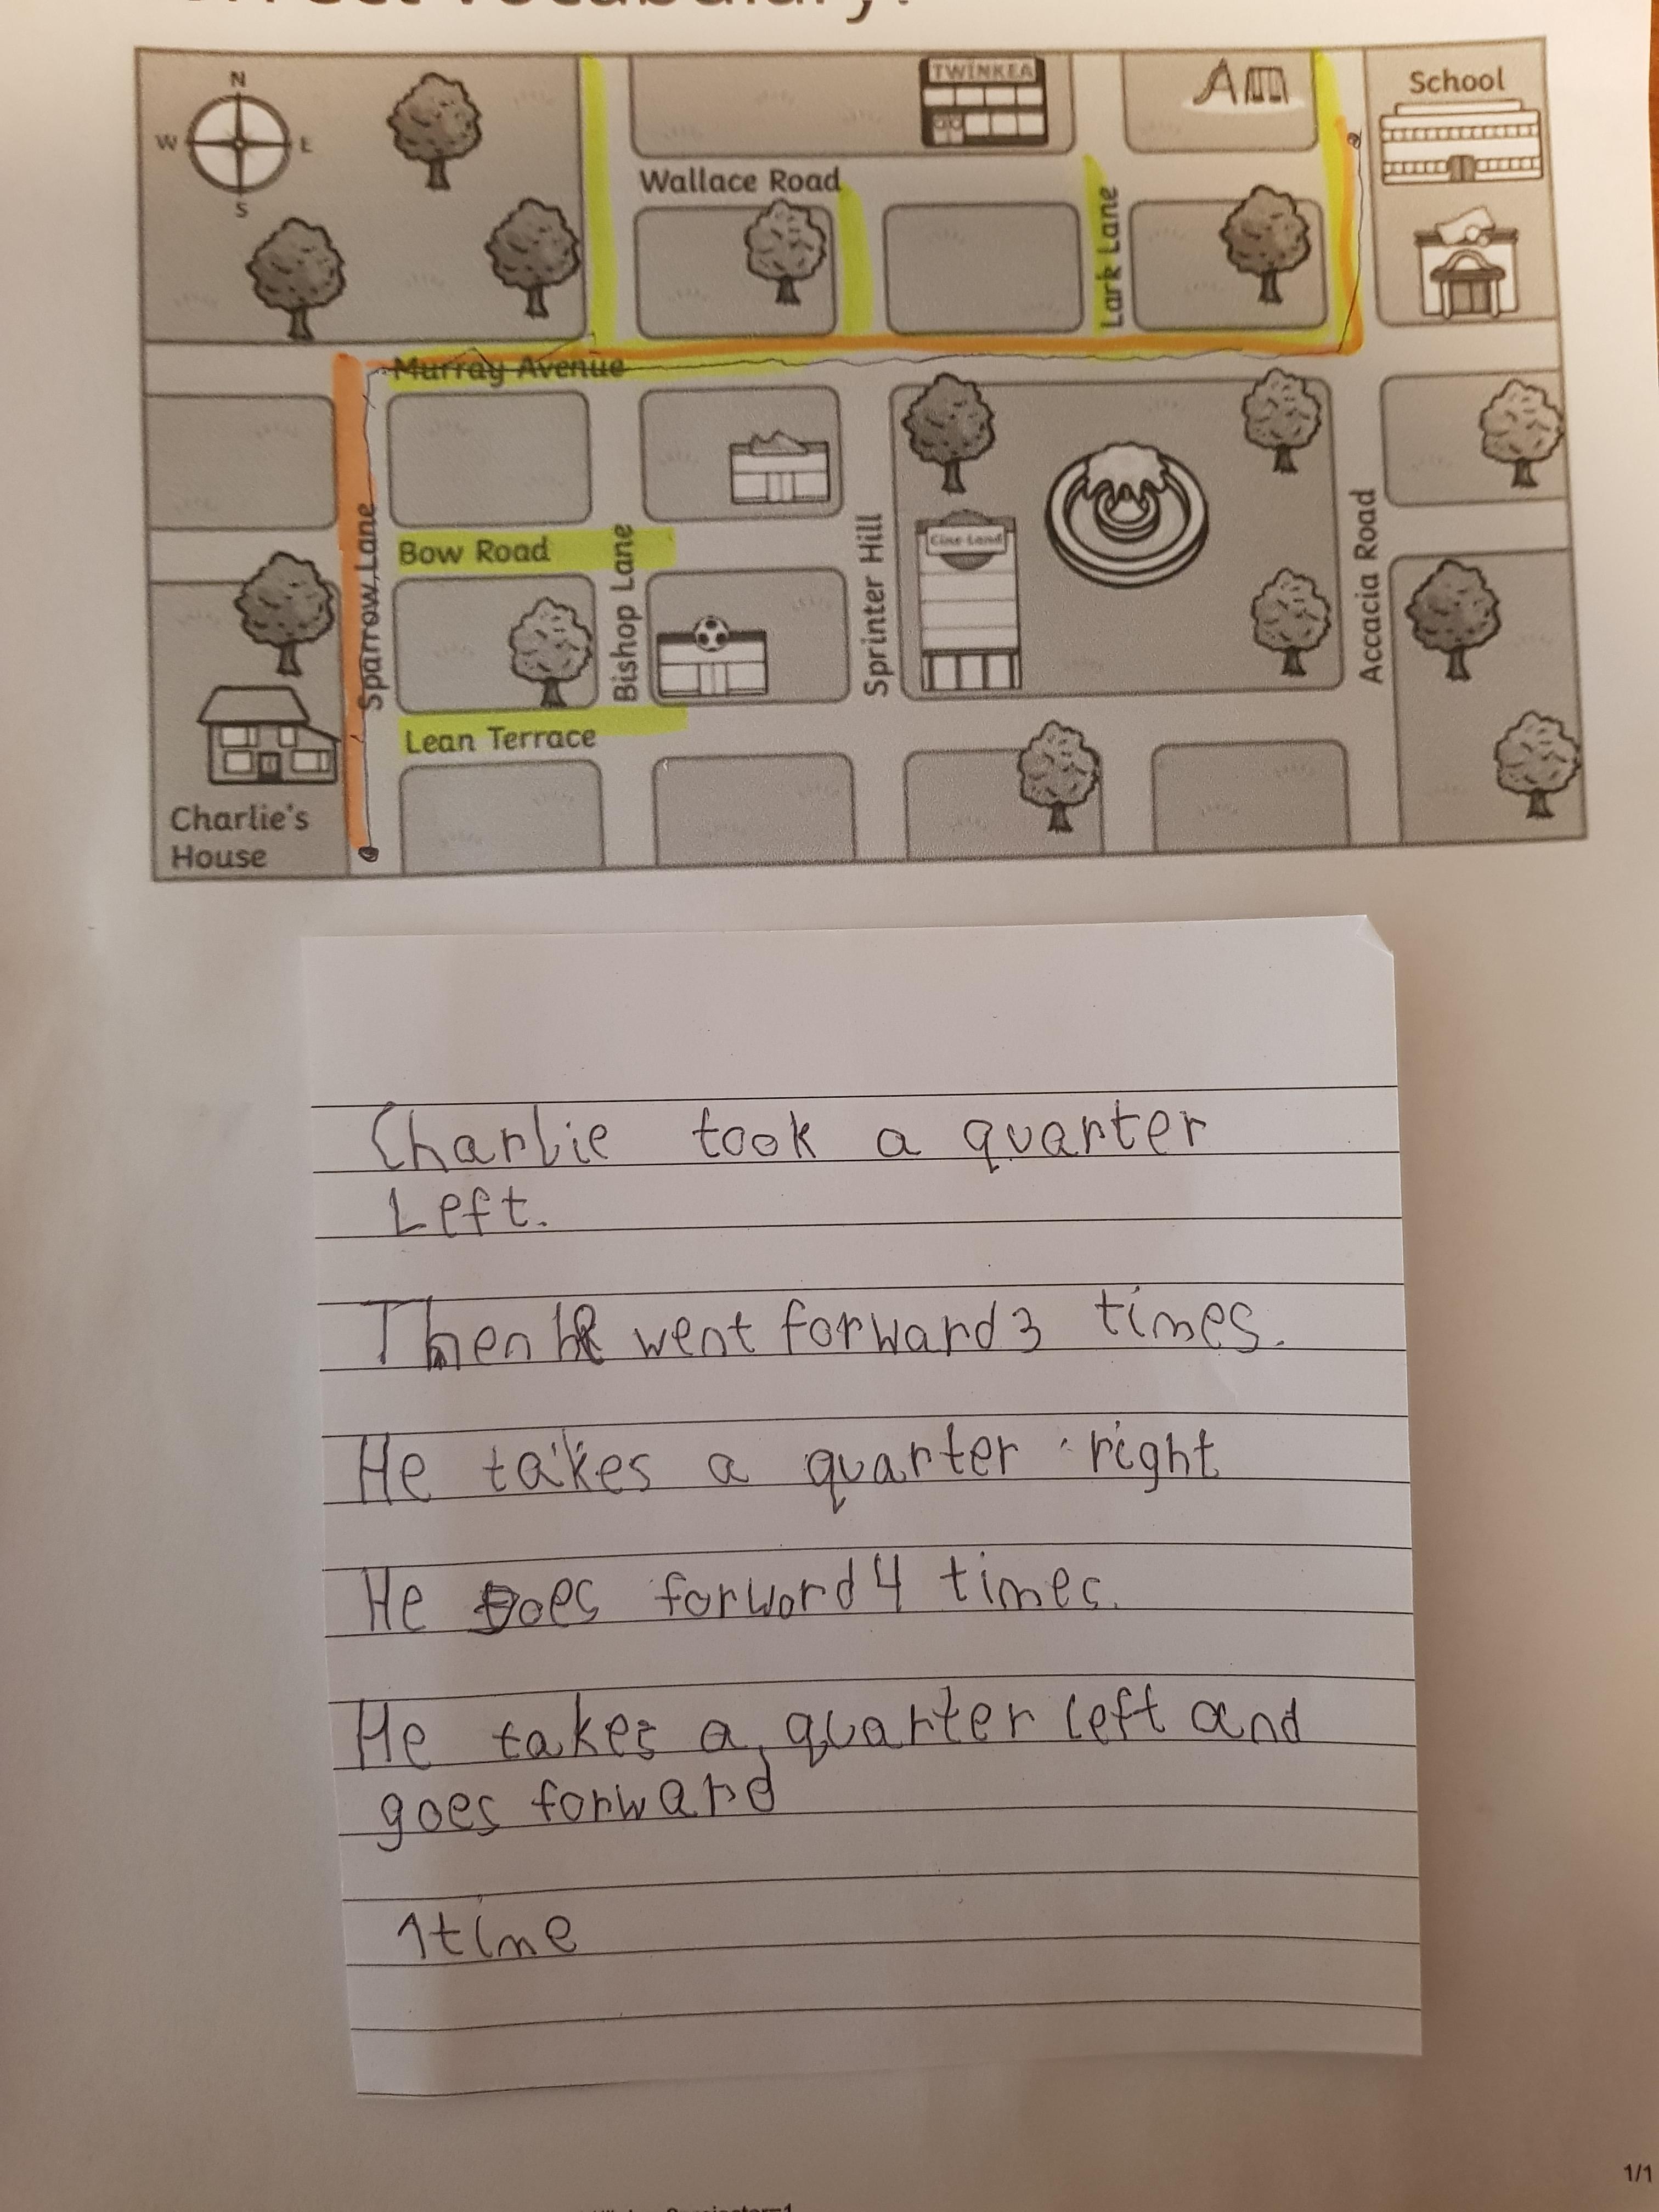 N
W E
S
TWINKEA
School
Wallace Road
Lark Lane
Murray Avenue
Sparrow Lane
Bow Road
Bishop Lane
Sprinter Hill
Cine Land
Accacia Road
Lean Terrace
Charlie's
House
Charlie took a quarter
Left.
Then he went forward 3 times.
He takes a quarter right
He goes forword 4 times.
He takes a quarter left and
goes forward
1 time
1/1